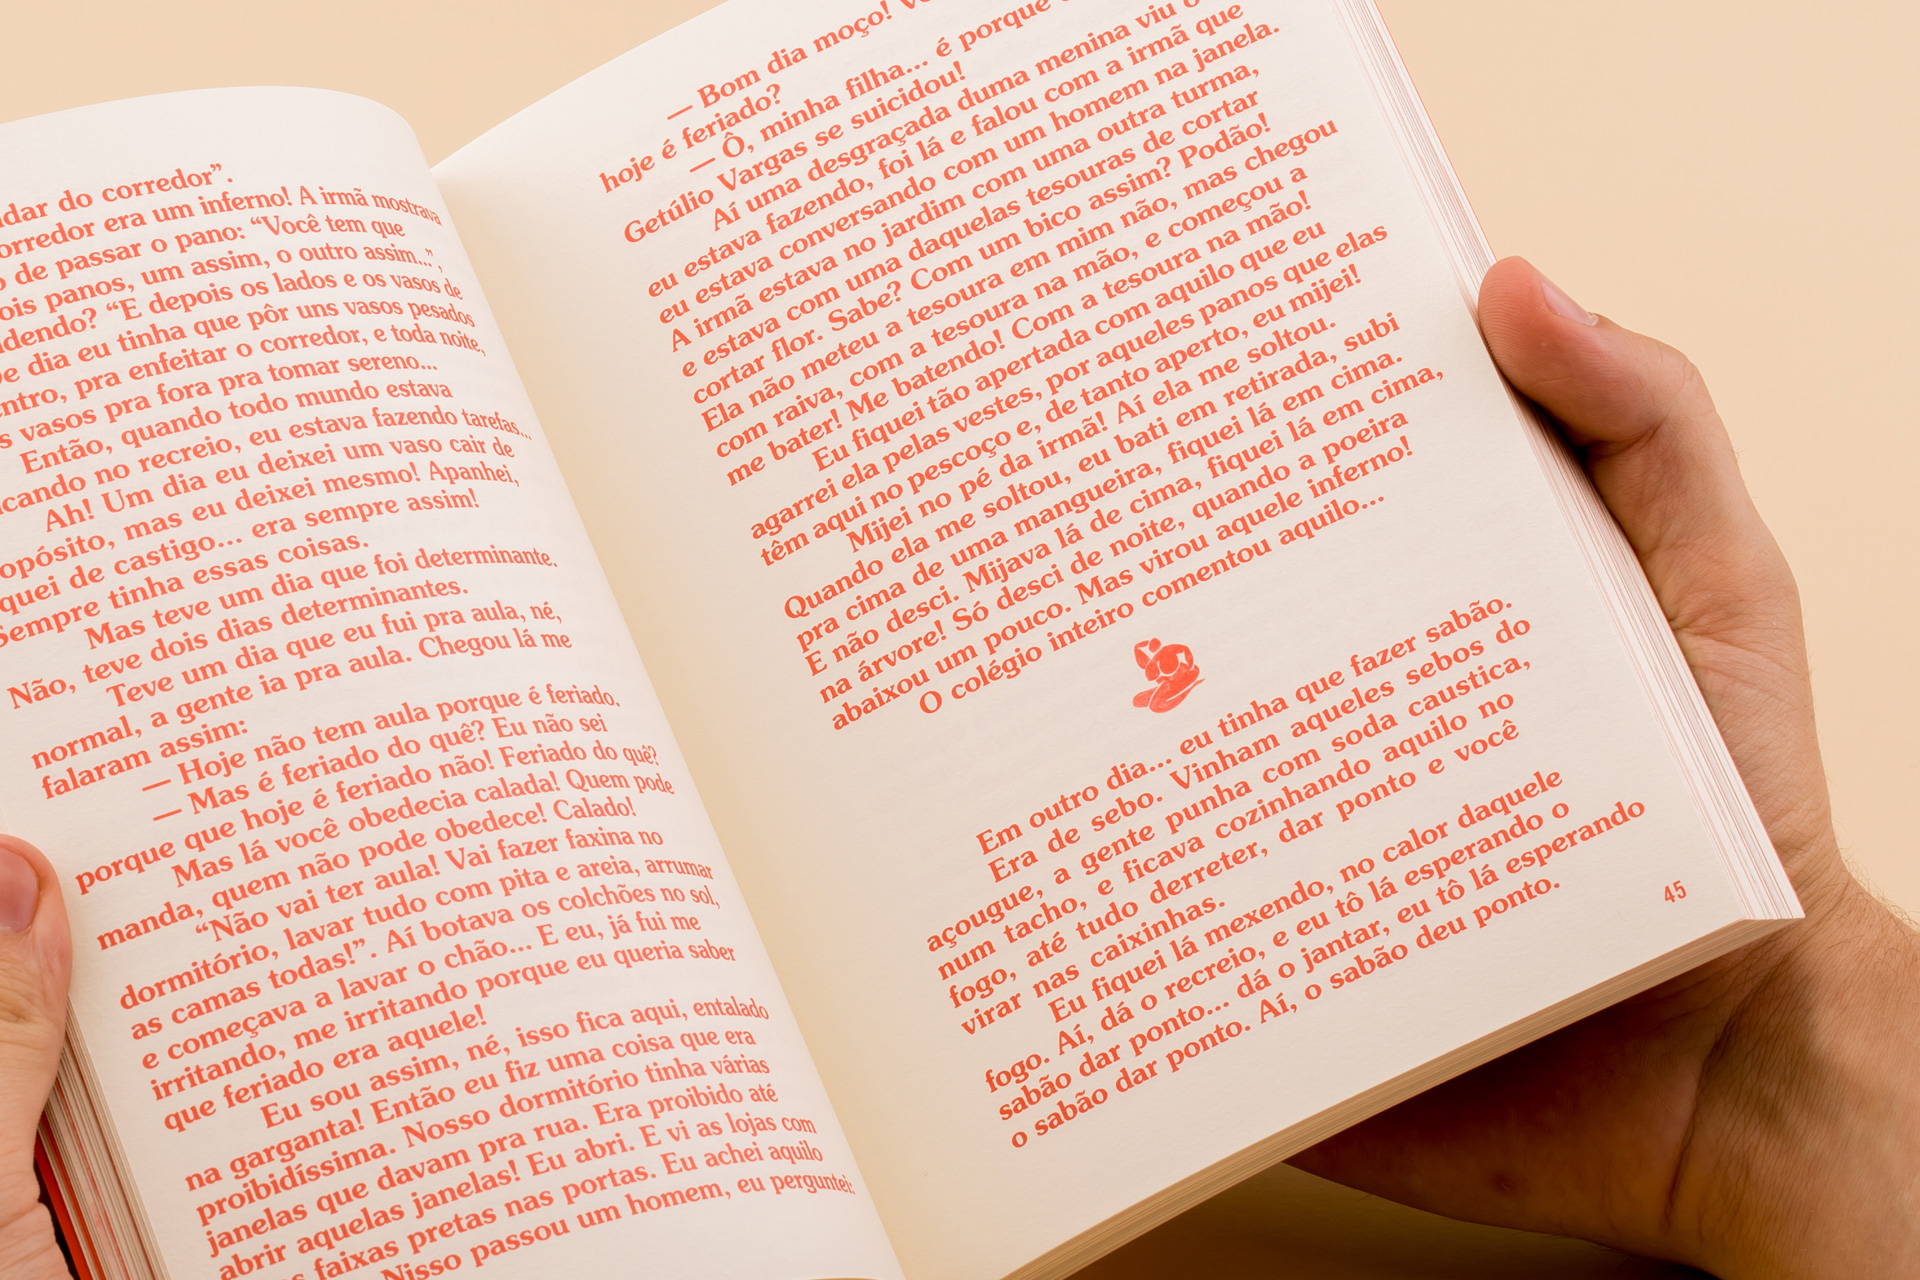 dar do corredor”.
corredor era um inferno! A irmã mostrava
de passar o pano: “Você tem que
panos, um assim, o outro assim...”,
“E depois os lados e os vasos de
dia eu tinha que pôr uns vasos pesados
pra enfeitar o corredor, e toda noite,
vasos pra fora pra tomar sereno...
Então, quando todo mundo estava
no recreio, eu estava fazendo tarefas...
Ah! Um dia eu deixei um vaso cair de
mas eu deixei mesmo! Apanhei,
de castigo... era sempre assim!
Sempre tinha essas coisas.
Mas teve um dia que foi determinante.
Não, teve dois dias determinantes.
Teve um dia que eu fui pra aula, né,
normal, a gente ia pra aula. Chegou lá me
falaram assim:
— Hoje não tem aula porque é feriado.
— Mas é feriado do quê? Eu não sei
porque que hoje é feriado não! Feriado do quê?
Mas lá você obedecia calada! Quem pode
manda, quem não pode obedece! Calado!
“Não vai ter aula! Vai fazer faxina no
dormitório, lavar tudo com pita e areia, arrumar
as camas todas!”. Aí botava os colchões no sol,
e começava a lavar o chão... E eu, já fui me
irritando, me irritando porque eu queria saber
que feriado era aquele!
Eu sou assim, né, isso fica aqui, entalado
na garganta! Então eu fiz uma coisa que era
proibidíssima. Nosso dormitório tinha várias
janelas que davam pra rua. Era proibido até
abrir aquelas janelas! Eu abri. E vi as lojas com
faixas pretas nas portas. Eu achei aquilo
Nisso passou um homem, eu perguntei:
— Bom dia moço!
hoje é feriado?
— Ô, minha filha... é porque
Getúlio Vargas se suicidou!
Aí uma desgraçada duma menina viu o
eu estava fazendo, foi lá e falou com a irmã que
eu estava conversando com um homem na janela.
A irmã estava no jardim com uma outra turma,
e estava com uma daquelas tesouras de cortar
cortar flor. Sabe? Com um bico assim? Podão!
Ela não meteu a tesoura em mim não, mas chegou
com raiva, com a tesoura na mão, e começou a
me bater! Me batendo! Com a tesoura na mão!
Eu fiquei tão apertada com aquilo que eu
agarrei ela pelas vestes, por aqueles panos que elas
têm aqui no pescoço e, de tanto aperto, eu mijei!
Mijei no pé da irmã! Aí ela me soltou.
Quando ela me soltou, eu bati em retirada, subi
pra cima de uma mangueira, fiquei lá em cima.
E não desci. Mijava lá de cima, fiquei lá em cima,
na árvore! Só desci de noite, quando a poeira
abaixou um pouco. Mas virou aquele inferno!
O colégio inteiro comentou aquilo...
Em outro dia... eu tinha que fazer sabão.
Era de sebo. Vinham aqueles sebos do
açougue, a gente punha com soda caustica,
num tacho, e ficava cozinhando aquilo no
fogo, até tudo derreter, dar ponto e você
virar nas caixinhas.
Eu fiquei lá mexendo, no calor daquele
fogo. Aí, dá o recreio, e eu tô lá esperando o
sabão dar ponto... dá o jantar, eu tô lá esperando
o sabão dar ponto. Aí, o sabão deu ponto.
45